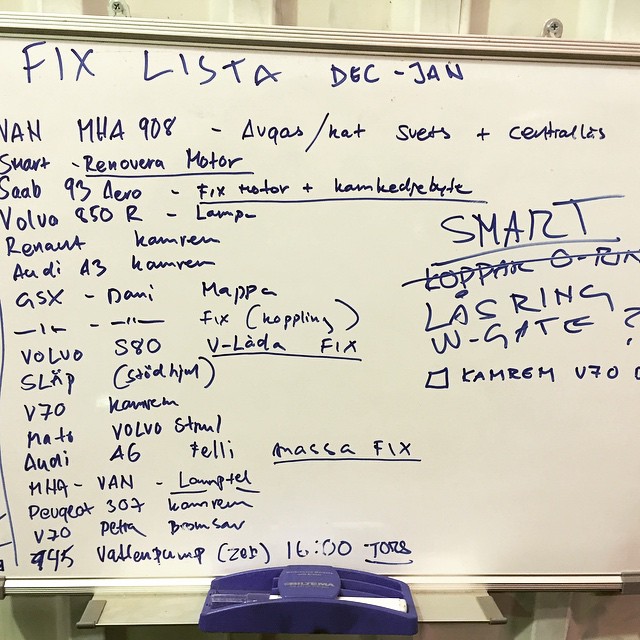 FIX LISTA DEC-JAN
VAN MHA 908 - Avgas/kat svets + centrallås
Smart - Renovera Motor
Saab 93 Aero - Fix motor + kamkedjebyte
Volvo 850 R - Lampa
Renaut kamrem
Audi A3 kamrem
GSX - Dani Mappa
-11- -11- FIX (koppling)
VOLVO S80 V-Låda FIX
SLÄP (stödhjul)
V70 kamrem
Mats VOLVO Strul
Audi A6 Felli massa FIX
MHA - VAN - Lampfel
Peugeot 307 kamrem
V70 Petra Bromsar
945 Vattenpump (zeb) 16:00 TORS
SMART
KOPPAR O-RIN
LÅSRING
W-GATE ?
KAMREM V70
BILTEMA